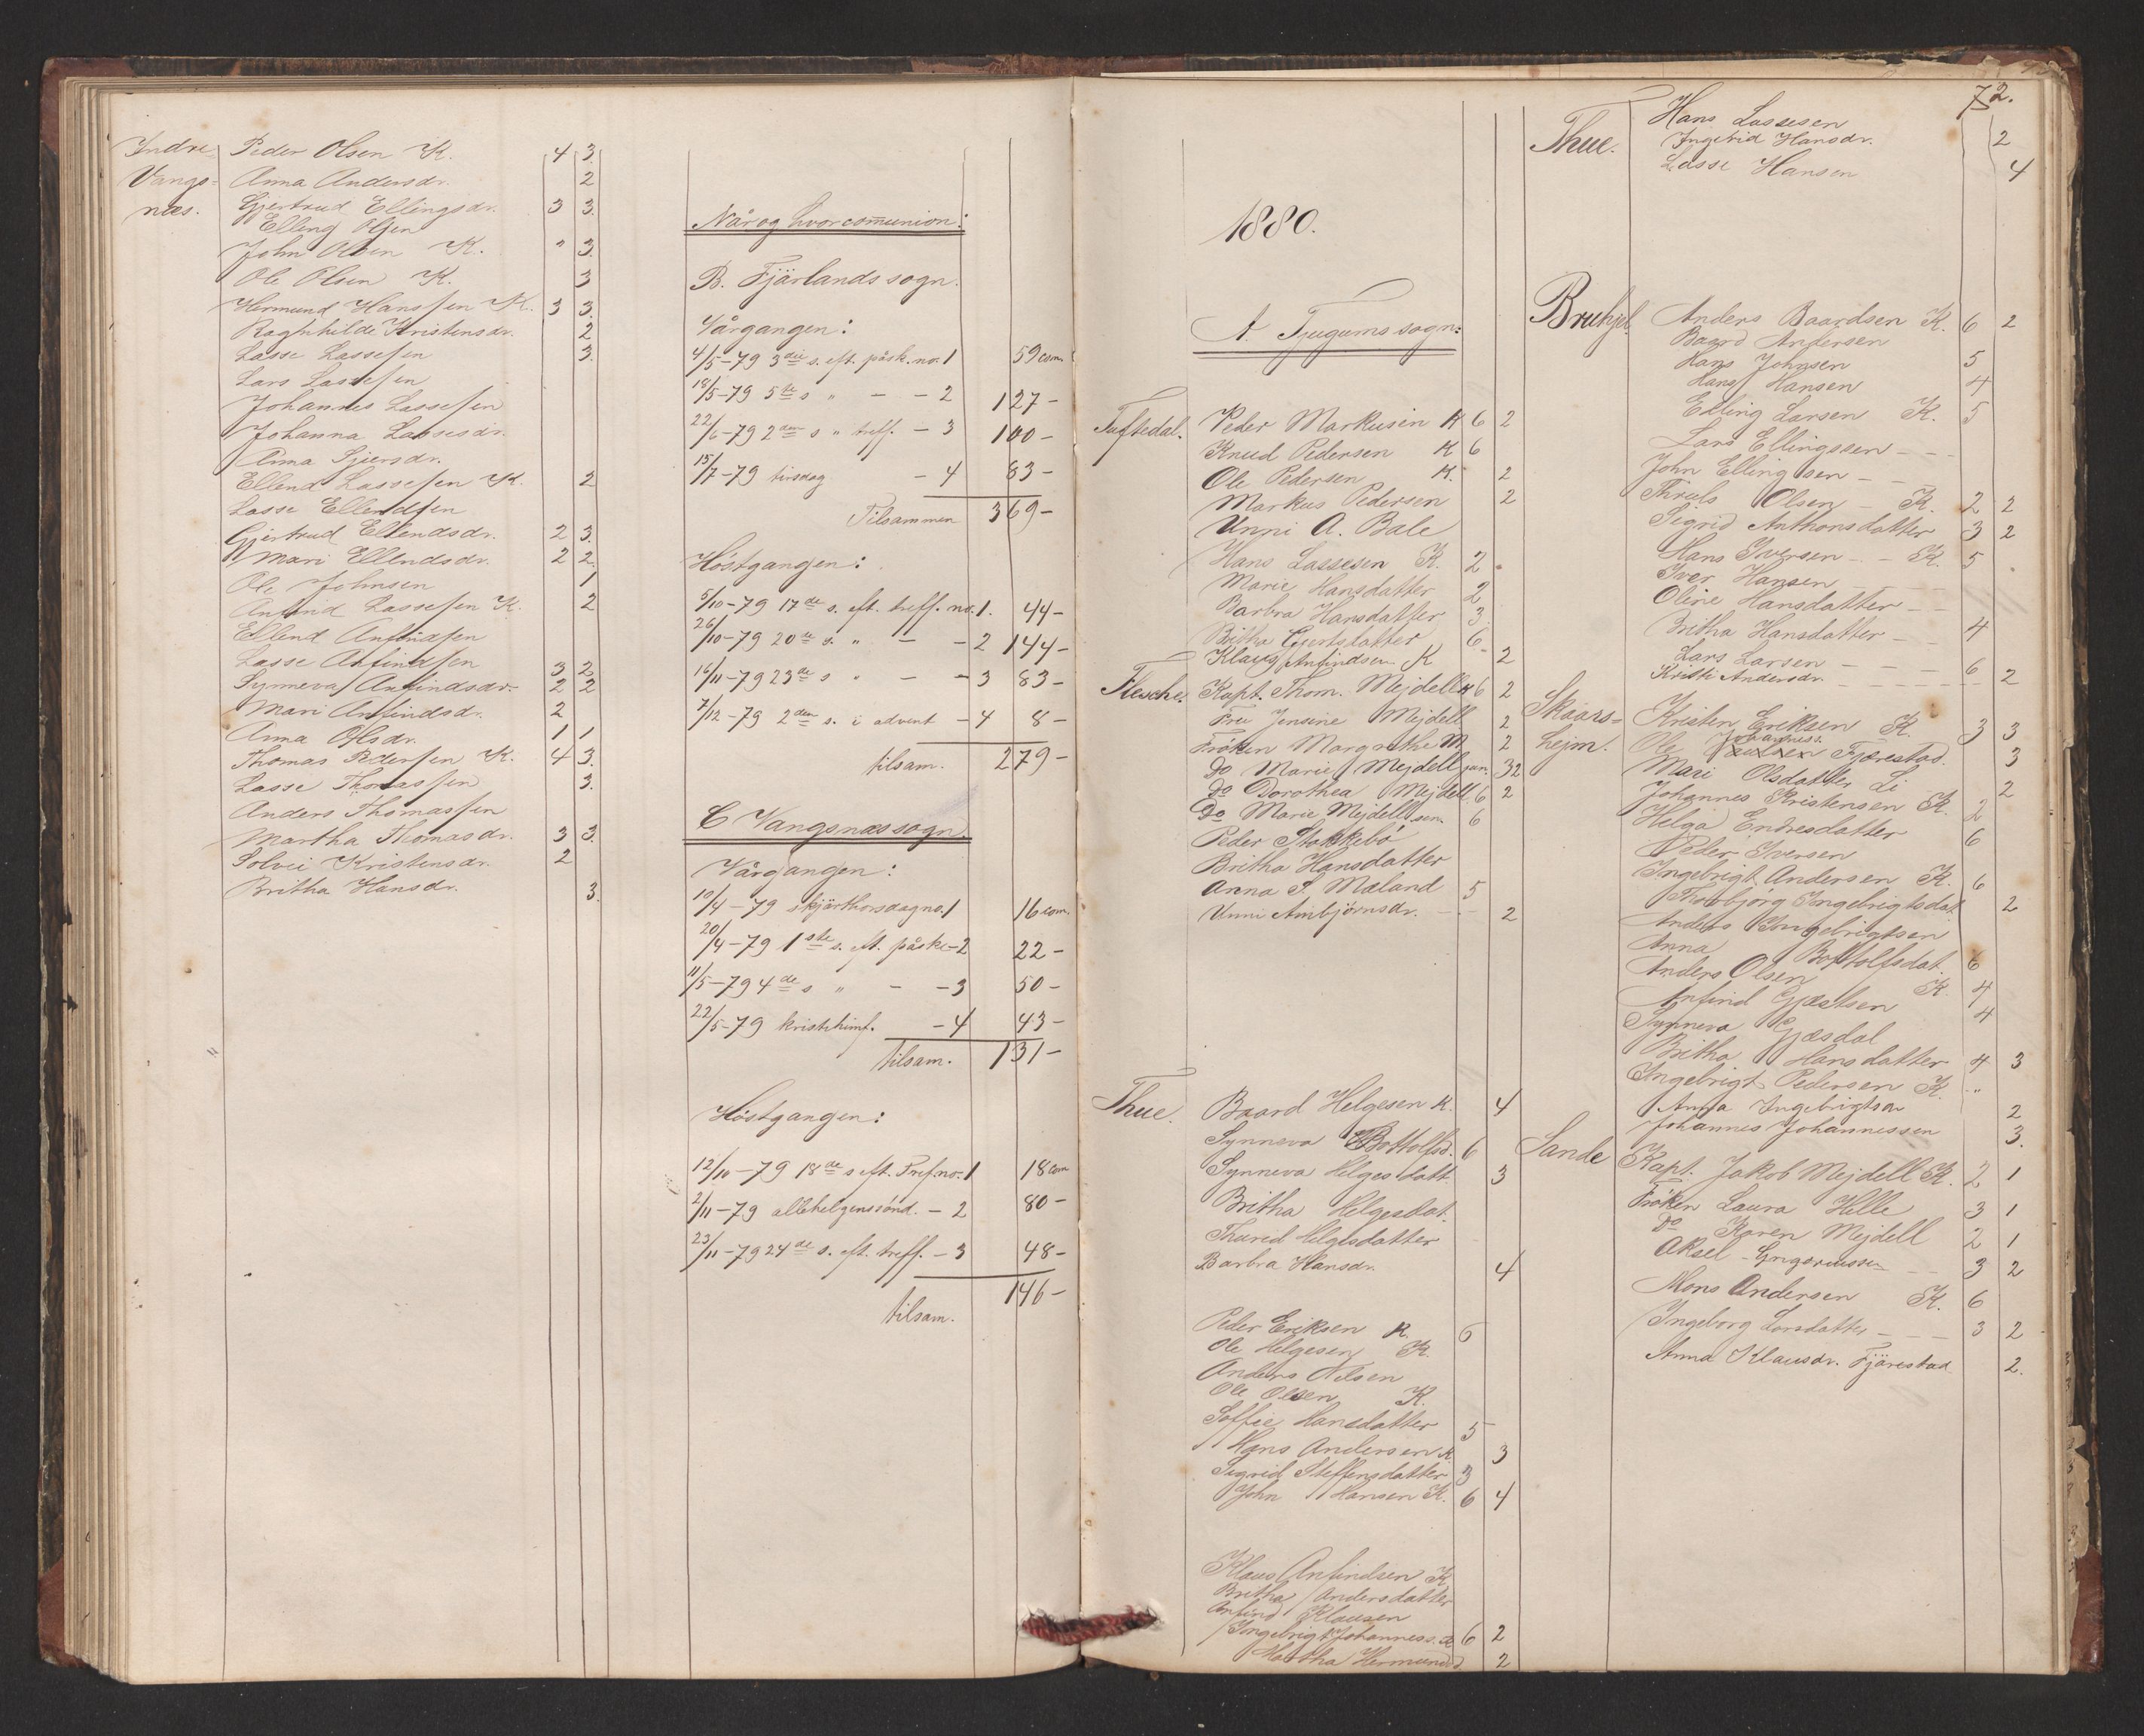 Indre Peder Olsen K. 4 3.
Vangs= Anna Andersdr. 2
næs. Gjertrud Ellingsdr. 3 3.
Elling Olsen
John Olsen K. " 3.
Ole Olsen K. 3
Hermund Hanssen K. 3 3.
Raghnhilde Kristensdr. 2
Lasse Lassesen 3.
Lars Lassesen
Johannes Lassesen
Johanna Lassesdr.
Anna Sjursdr.
Ellend Lassesen K. 2
Lasse Ellendsen
Gjertrud Ellendsdr. 2 3.
Mari Ellendsdr. 2 2.
Ole Johnsen 1
Anfind Lassesen K. 2
Ellend Anfindsen
Lasse Anfindsen 3 2
Synneva Anfindsdr. 2 2
Mari Anfindsdr. 2
Anna Olsdr. 1 1
Thomas Pedersen K. 4 3.
Lasse Thomassen 3.
Anders Thomassen
Martha Thomasdr. 3 3.
Solvei Kristensdr. 2
Britha Hansdr. 3.
Når og hvor communion:
B. Fjärlands sogn.
Vårgangen:
4/5-79 3die s. eft. påsk. no. 1 59 com
18/5-79 5te s " - - 2 127-
22/6-79 2den s " treff. - 3 100-
15/7-79 tirsdag - 4 83-
Tilsammen 369-
Höstgangen:
5/10-79 17de s. eft. treff. no. 1. 44-
26/10-79 20de s. " - - 2 144-
16/11-79 23de s " - - 3 83-
7/12-79 2den s. i advent - 4 8-
tilsam. 279-
C Vangsnæs sogn
Vårgangen:
10/4-79 skjärthorsdag no. 1 16 com.
20/4-79 1ste s. eft. påske - 2 22-
11/5-79 4de s " - - 3 50-
22/5-79 kristi himf. - 4 43-
tilsam. 131-
Höstgangen:
12/10-79 18de s eft. Tref. no. 1 18 com
2/11-79 allehelgenssönd. - 2 80-
23/11-79 24de s. eft. treff. - 3 48-
146-
tilsam.
1880.
A. Tjugums sogn:
Tuftedal. Peder Markusen K 6 2
Knud Pedersen K 6
Ole Pedersen K. 2
Markus Pedersen 2
Unni A. Bale
Hans Lassesen K. 2
Marie Hansdatter 2
Barbra Hansdatter 3.
Britha Gjertsdatter 6
Klaus Anfindsen K 2
Flesche. Kapt. Thom. Mejdell K 6 2
Frü Jensine Mejdell 2
Fröken Margrethe M. 2
do Marie Mejdell jun. 3 2
do Dorothea Mejdell 6 2
do Marie Mejdell sen. 6
Peder Stokkebö
Britha Hansdatter
Anna S. Mæland 5
Unni Ambjörnsdr. - - 2
Thue. Baard Helgesen K. 4
Synneva Bottolfsd. 6
Synneva Helgesdatt. 3
Britha Helgesdat.
Thurid Helgesdatter
Barbra Hansdr. 4
Peder Eriksen K. 6
Ole Helgesen K.
Anders Nilsen
Ole Olsen K.
Soffie Hansdatter 5
Hans Andersen K 3
Sigrid Steffensdatter 3
John Hansen K. 6 4
Klaus Anfindsen K
Britha Andersdatter
Anfind Klausen
Ingebrigt Johanness. K 6 2
Martha Hermundd 2
72.
Thue. Hans Lassesen
Ingebrid Hansdr. 2
Lasse Hansen 4
Bruhjel. Anders Baardsen K. 6 2
Baard Andersen
Hans Johnsen 5
Hans Hansen 4
Elling Larsen K. 5
Lars Ellingssen - -
John Ellingsen - -
Thruls Olsen - K. 2 2
Sigrid Anthonsdatter 3 2
Hans Iversen - - K. 5
Iver Hansen
Oline Hansdatter - -
Britha Hansdatter - 4
Lars Larsen - - - 6
Kristi Andersdr. - - - - 2
Skaars= Kristen Eriksen K. 3 3
hejm. Ole Johanness. Fjærestad. 3
Mari Olsdatter Li 2
Johannes Kristensen K. 2
Helga Endresdatter 6
Peder Iversen
Ingebrigt Andersen K. 6
Thorbjorg Ingebrigtsdat. 2
Anders Ingebrigtsen
Anna Bottolfsdat. 6
Anders Olsen K. 4
Anfind Gjæstsen 4
Synneva Gjæsdal
Britha Hansdatter 4 3
Ingebrigt Pedersen K. "
Anna Ingebrigtsdr 2
Johannes Johannessen 3.
Sande Kapt. Jakob Mejdell K. 2 1
Fröken Laura Helle 3 1
do Karen Mejdell 2 1
Aksel - - - 3 2
Mons Andersen K. 6
Ingeborg Larsdatter - - - 3 2
Anna Klausdr. Fjærestad 2.